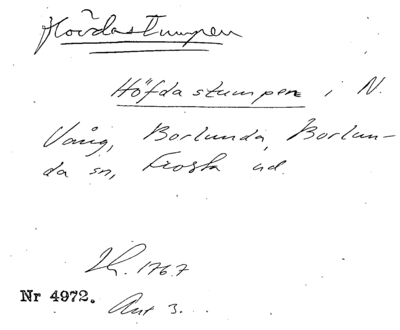 Hövdastumpen
Höfda stumpen i N.
Vång, Borlunda, Borlun-
da sn, Frosta hd.
1767
Nr 4972.
Akt 3.